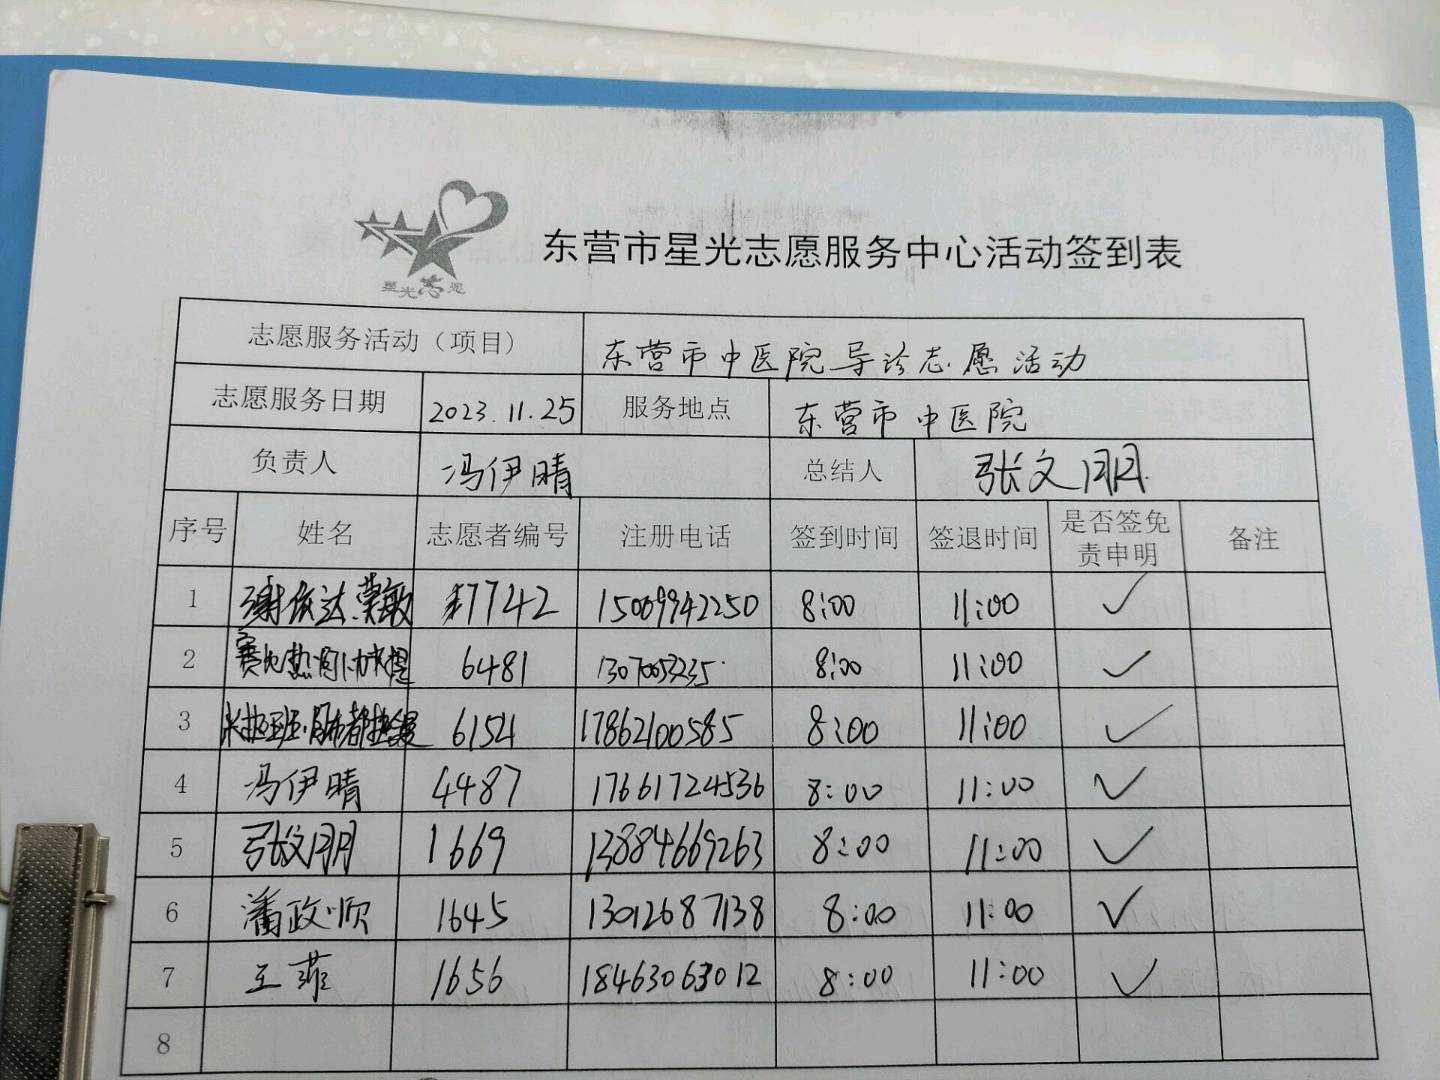 星光志愿
东营市星光志愿服务中心活动签到表
志愿服务活动（项目） 东营市中医院导诊志愿活动
志愿服务日期 2023.11.25 服务地点 东营市中医院
负责人 冯伊晴 总结人 张文朋
序号 姓名 志愿者编号 注册电话 签到时间 签退时间 是否签免责申明 备注
1 谢依达 7742 15069942250 8:00 11:00 ✓
2 6481 8:00 11:00 ✓
3 6154 17862100585 8:00 11:00 ✓
4 冯伊晴 4487 17661724536 8:00 11:00 ✓
5 张文朋 1669 13884669263 8:00 11:00 ✓
6 潘政顺 1645 13012687138 8:00 11:00 ✓
7 王菲 1656 18463063012 8:00 11:00 ✓
8